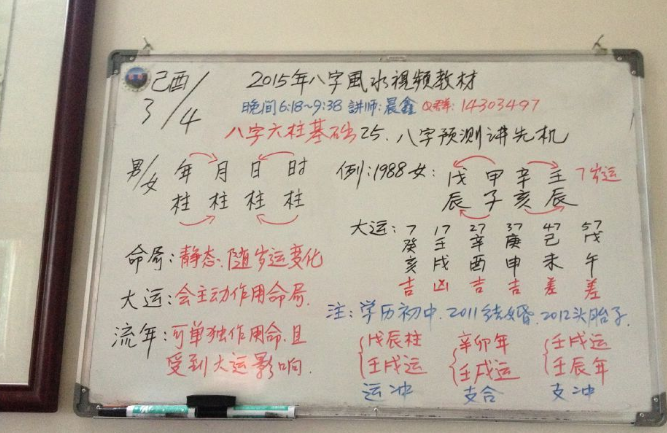 己酉/
3/4
2015年八字風水視頻教材
晚间6:18~9:38 講师:晨鑫 Q群:14303497
八字六柱基础25.八字预测讲先机
男/女 年 月 日 时
柱 柱 柱 柱
命局:静态.随岁运变化
大运:会主动作用命局.
流年:可单独作用命.且
受到大运影响.
例:1988女: 戊 甲 辛 壬 7岁运
辰 子 亥 辰
大运: 7 17 27 37 47 57
癸 壬 辛 庚 己 戊
亥 戌 酉 申 未 午
吉 凶 吉 吉 差 差
注:学历初中.2011结婚.2012头胎子.
戊辰柱 辛卯年 壬戌运
壬戌运 壬戌运 壬辰年
运冲 支合 支冲